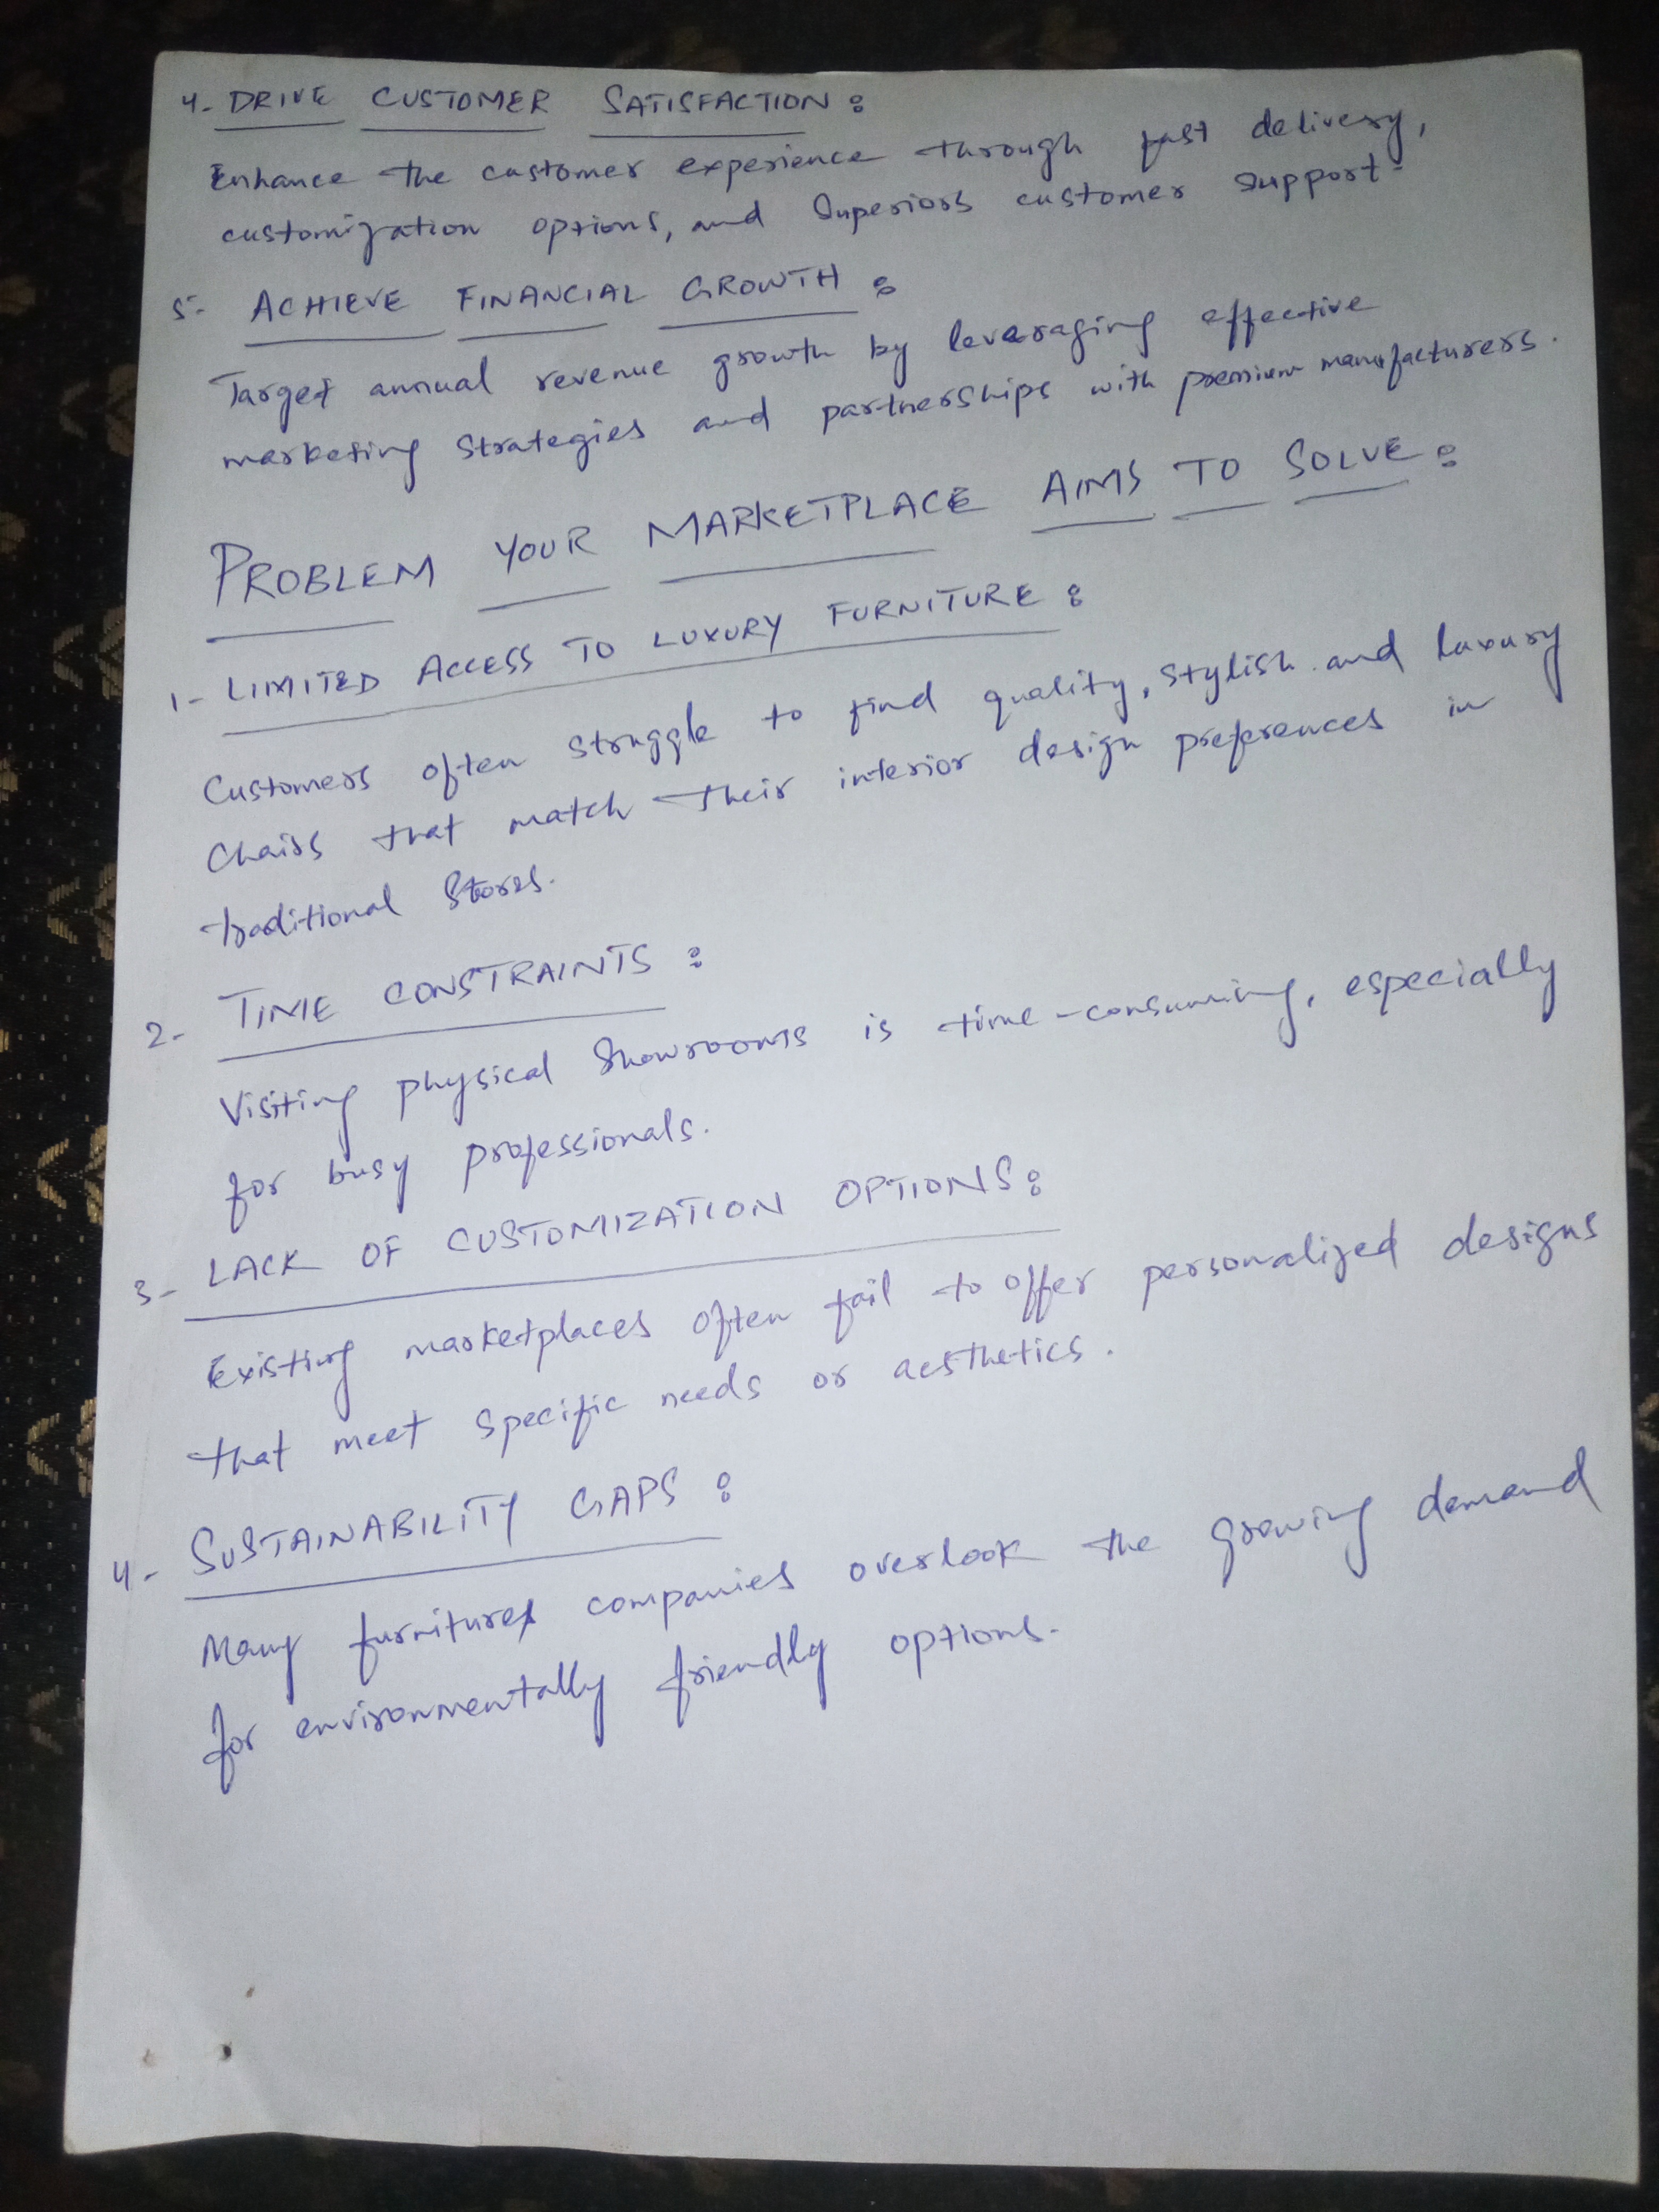 4- DRIVE CUSTOMER SATISFACTION :
Enhance the customer experience through fast delivery,
customization options, and Superiors customer support.
5- ACHIEVE FINANCIAL GROWTH :
Target annual revenue growth by leveraging effective
marketing Strategies and partnerships with premium manufacturers.
PROBLEM YOUR MARKETPLACE AIMS TO SOLVE :
1- LIMITED ACCESS TO LUXURY FURNITURE :
Customers often struggle to find quality, stylish and luxury
Chairs that match their interior design preferences in
traditional Stores.
2- TIME CONSTRAINTS :
Visiting physical Showrooms is time-consuming, especially
for busy professionals.
3- LACK OF CUSTOMIZATION OPTIONS :
Existing marketplaces often fail to offer personalized designs
that meet specific needs or aesthetics.
4- SUSTAINABILITY GAPS :
Many furniture companies overlook the growing demand
for environmentally friendly options.